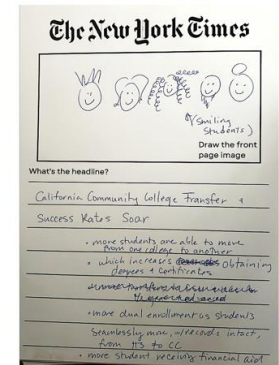 The New York Times
(Smiling
Students)
Draw the front
page image
What's the headline?
California Community College Transfer &
Success Rates Soar
• more students are able to move
from one college to another
• which increases obtaining
degrees & certificates
• more dual enrollment as students
seamlessly move, w/records intact,
from HS to CC
• more student receiving financial aid